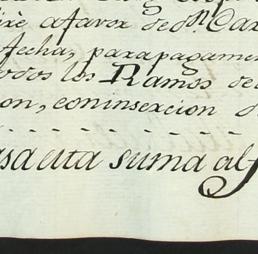 a favor de Dn. Car
fecha, para pagamen
todos los Ramos de
on, con insercion d
asauta suma al